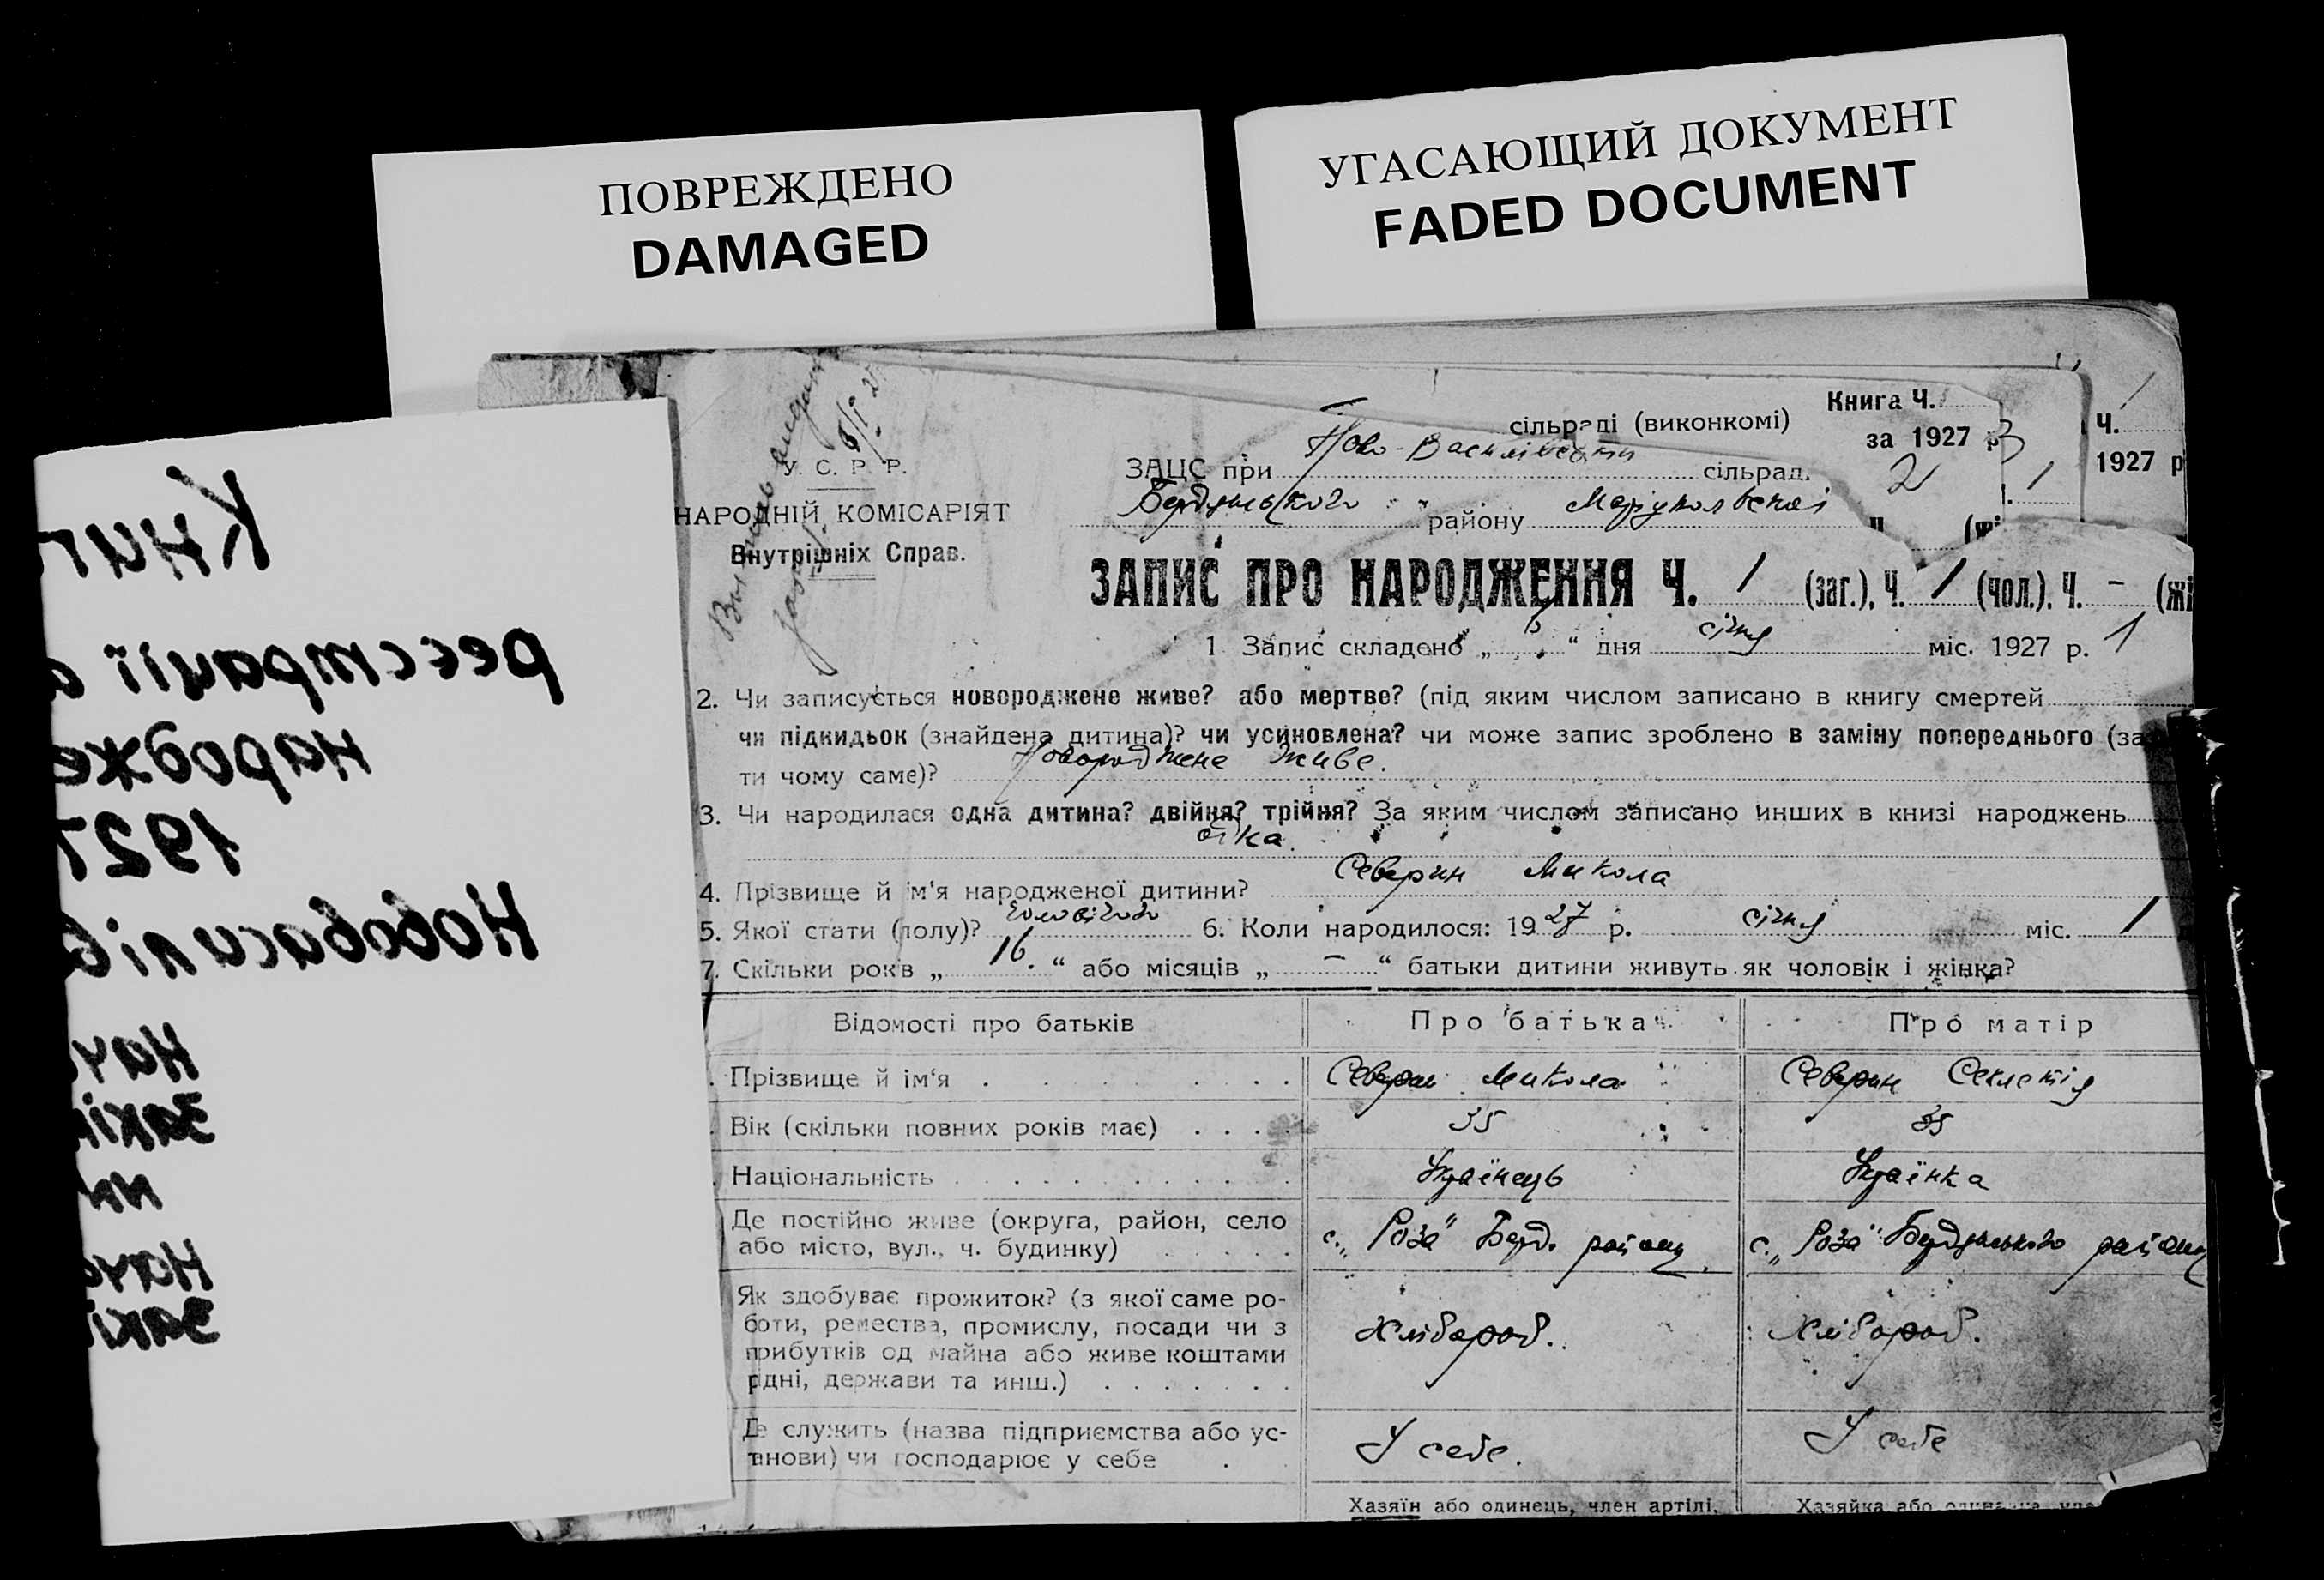 ПОВРЕЖДЕНО
DAMAGED
УГАСАЮЩИЙ ДОКУМЕНТ
FADED DOCUMENT
Книг
реєстрації
народже
1927
Новобасилів
Нач
Закі
Нач
Закі
У. С. Р. Р.
НАРОДНІЙ КОМІСАРІЯТ
Внутрішніх Справ.
сільраді (виконкомі)
Книга Ч.
за 1927 р
3
2
Ч.
1927 р
1
ЗАЦС при Ново-Василівській сільрад.
Бердянського району Маріупольської
ЗАПИС ПРО НАРОДЖЕННЯ Ч. 1 (заг.), Ч. 1 (чол.). Ч. - (жі
1 Запис складено „ 6 “ дня січня міс. 1927 р. 1
2. Чи записується новороджене живе? або мертве? (під яким числом записано в книгу смертей
чи підкидьок (знайдена дитина)? чи усиновлена? чи може запис зроблено в заміну попереднього (за
ти чому саме)? Новороджене живе.
3. Чи народилася одна дитина? двійня? трійня? За яким числом записано инших в книзі народжень
4. Прізвище й ім‘я народженої дитини? Северин Микола
5. Якої стати (полу)? чоловічого 6. Коли народилося: 1927 р. січня міс. 1
7. Скільки років „ 16. “ або місяців „ – “ батьки дитини живуть як чоловік і жінка?
Відомості про батьків Про батька Про матір
Прізвище й ім‘я Северин Микола Северин Секлетія
Вік (скільки повних років має) 35 35
Національність Українець Українка
Де постійно живе (округа, район, село
або місто, вул., ч. будинку) с. „Роза“ Берд. району с. „Роза“ Бердянського району
Як здобуває прожиток? (з якої саме ро-
боти, ремества, промислу, посади чи з
прибутків од майна або живе коштами
рідні, держави та инш.) Хлібороб. Хлібороб.
Де служить (назва підприємства або ус-
танови) чи господарює у себе У себе. У себе
Хазяїн або одинець, член артілі, Хазяйка або